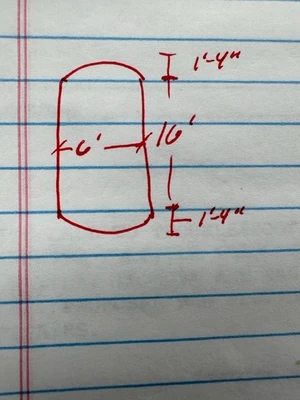 1'-4"
6'
16'
1'-4"